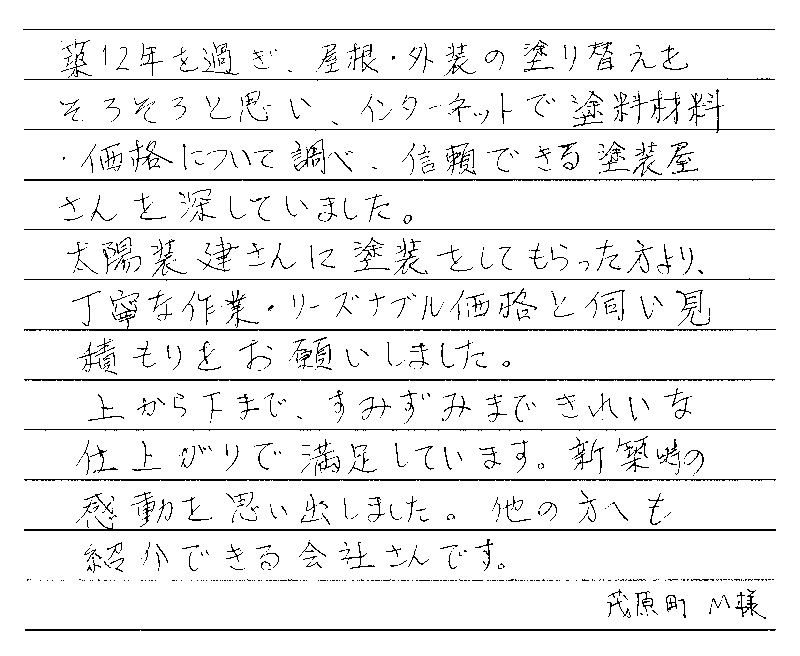 築12年を過ぎ、屋根・外装の塗り替えを
そろそろと思い、インターネットで塗料材料
・価格について調べ、信頼できる塗装屋
さんを深していました。
太陽装建さんに塗装をしてもらった方より、
丁寧な作業・リーズナブル価格と伺い見
積もりをお願いしました。
上から下まで、すみずみまできれいな
仕上がりで満足しています。新築時の
感動を思い出しました。他の方へも
紹介できる会社さんです。
茂原町 M様